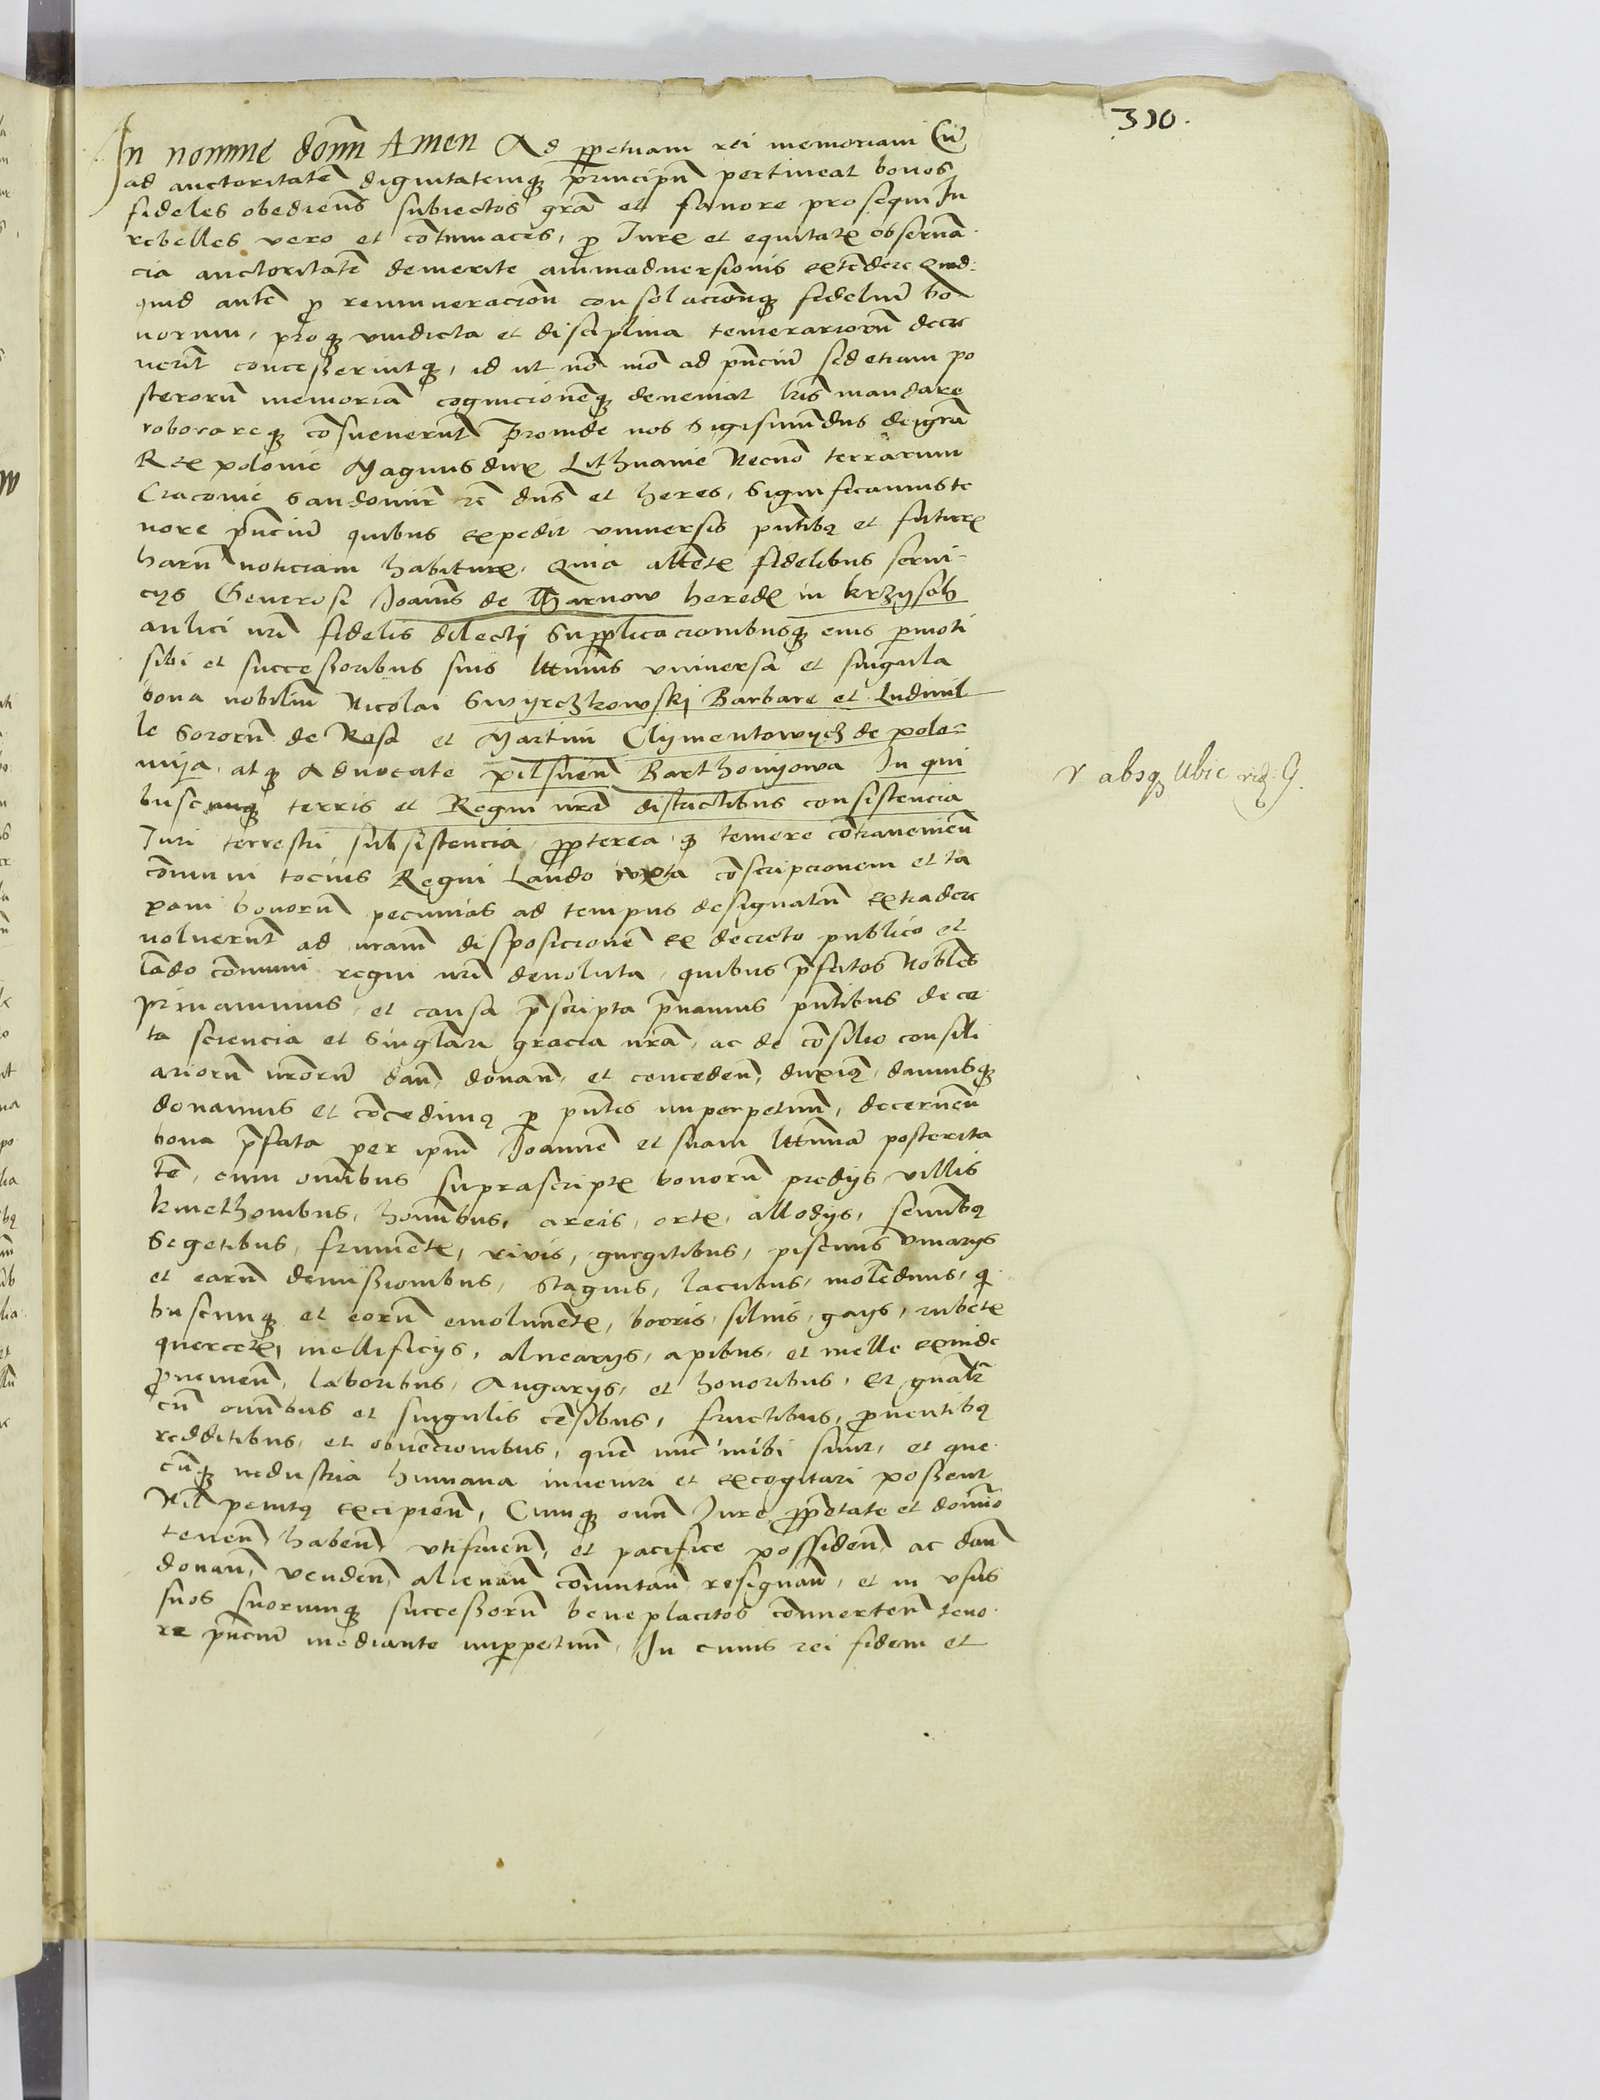 310.
In nomine domi Amen Ad ppetuam rei memoriam Cu
ad auctoritate dignitatemq principu pertineat bonos
fideles obediens subiectos gra et favore prosequi In
rebelles vero et cotumaces, p Iure et equitate observa
cia auctoritate demerite animadversionis extedere Quid
quid aute p remuneracion consolacionq fideliu bo
norum, proq vindicta et disciplina temerariorum decre
verit concesserintq, id ut no mo ad pnciu sed etiam po
sterorum memoria cognicioneq deveniat lris mandare
roborareq cosueverut Proinde nos Sigismundus dei gra
Rex polonie Magnus dux Lithuanie Necno terrarum
Cracovie Sandomir rc dns et heres, Significamus te
nore pnciu quibus expedit universis pntibq et futur
harum noticiam habitur, Quia attet fidelibus servi
cys Generosi Joanis de Tharnow hered in krzysch
aulici nri fidelis dilecti Supplicacionibusq eius pmoti
sibi et successoribus suis lttimis universa et singula
bona nobilium Nicolai Swyrczkowski Barbare et Ludmil
le Sororu de Rosa et Martini Clymentowycz de pola
nyja, atq Advocate pilsnen Barthonyowa In qui
buscunq terris et Regni nri districtibus consistencia
Iuri terrestri subsistencia, ppterea q temere cotravenien
comuni tocius Regni Laudo iuxta coscripcionem et ta
xam bonorum pecunias ad tempus designatum extradere
noluerut ad nram disposicione ex decreto publico et
laudo comuni regni nri devoluta, quibus pfatos Nobiles
privamus, et causa pscripta pvamus pntibus de cer
ta sciencia et singlari gracia nra, ac de cosilio consili
ariorum nrorum dan, donan, et conceden, duxiq, damusq
donamus et cocedimq p pntes imperpetuum, decernen
bona pfata per ipm Joanne et suam lttima posterita
te, cum omibus suprascript bonorum predys villis
kmethonibus, hominbus, areis, ort, allodys, seminbq
Segetibus, frument, rivis, gurgitibus, piscinis vivarys
et earum demissionibus, stagnis, lacubus, moledinis, q
buscunq et eorum emoliment, borris, silvis, gays, rubet
quercet, mellificys, alvearys, apibus, et melle exinde
pvenien, laboribus, Angarys, et honoribus, Et gnalr
cu omibus et singulis cesibus, fructibus, proventibq
redditibus, et obvecionibus, que nuc inibi sunt, et que
cuq industria humana inveniri et excogitari possent
Nil penitq excipien, Cumq omi Iure pprietate et domio
tenen haben utifruen, et pacifice possiden ac dan
donan, venden, alienan comutan resignan, et in usus
suos suorumq successorum beneplacitos converten teno
re pnciu mediante imppetuum, In cuius rei fidem et